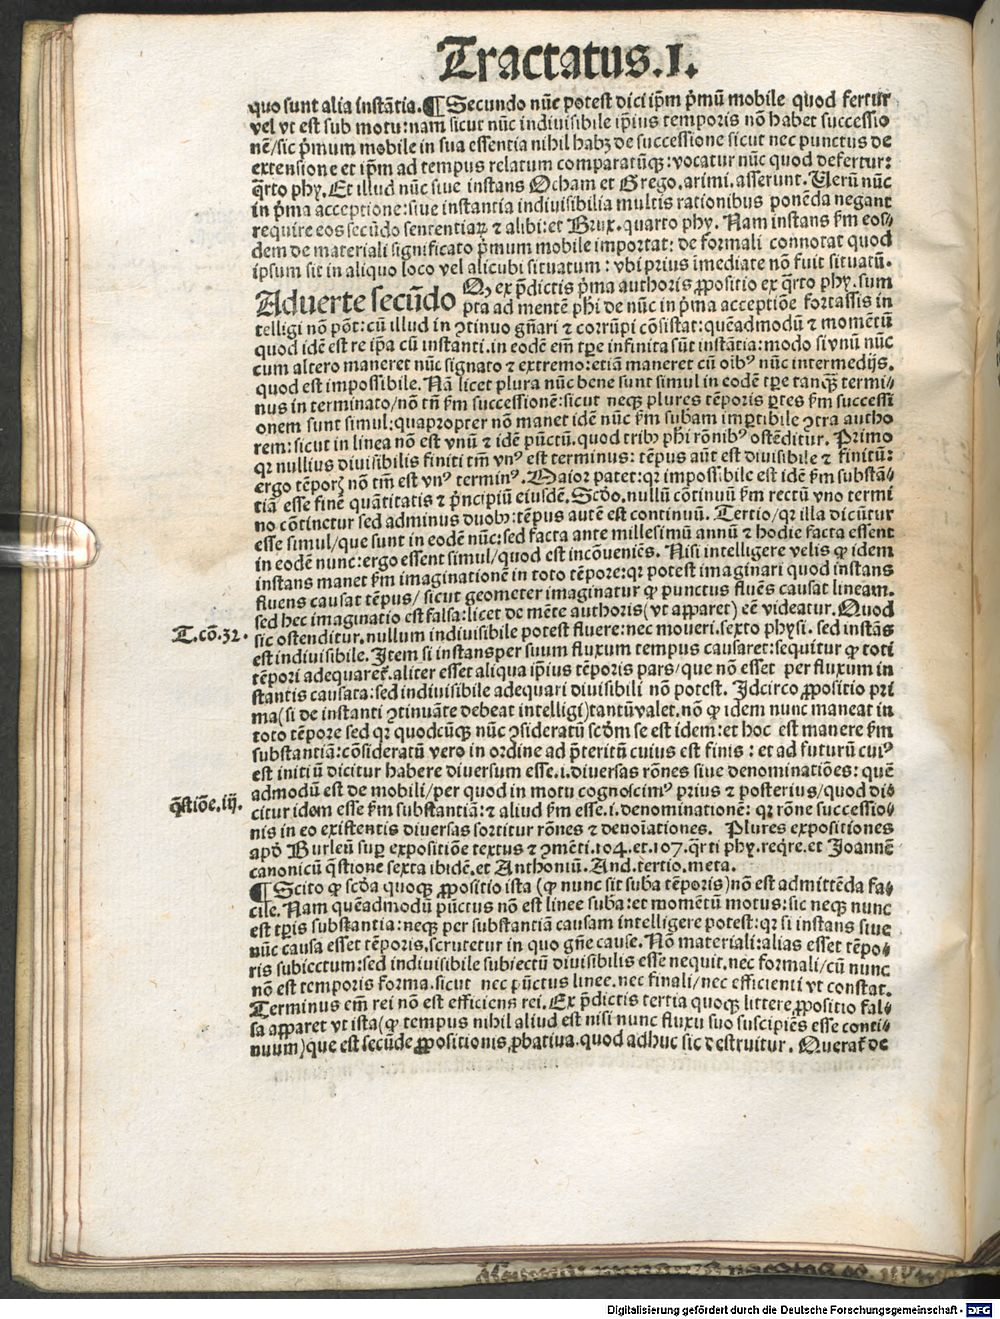 Tractatus.I.
quo sunt alia instātia.¶ Secundo nūc potest dici ip̄m p̄mū mobile quod fertur
vel vt est sub motu:nam sicut nūc indiuisibile ip̄ius temporis nō habet successio
nē/sic p̄mum mobile in sua essentia nihil habꝫ de successione sicut nec punctus de
extensione et ip̄m ad tempus relatum comparatūqꝫ:vocatur nūc quod defertur:
q̄rto phy. Et illud nūc siue instans Ocham et Grego.arimi.asserunt. Uerū nūc
in p̄ma acceptione:siue instantia indiuisibilia multis rationibus ponēda negant
require eos secūdo sententiaꝝ ⁊ alibi:et Brux.quarto phy. Nam instans ẜm eos⸗
dem de materiali significato p̄mum mobile importat: de formali connotat quod
ipsum sit in aliquo loco vel alicubi situatum: vbi prius īmediate nō fuit situatū.
Aduerte secūdo Qꝫ ex p̄dictis p̄ma authoris ꝓpositio ex q̄rto phy.sum
pta ad mentē phi de nūc in p̄ma acceptiōe fortassis in
telligi nō pōt:cū illud in ꝯtinuo gñari ⁊ corrūpi cōsistat:quēadmodū ⁊ momētū
quod idē est re ip̄a cū instanti.in eodē em̄ tꝑe infinita sūt instātia:modo si vnū nūc
cum altero maneret nūc signato ⁊ extremo:etiā maneret cū oibꝰ nūc intermedijs.
quod est impossibile. Nā licet plura nūc bene sunt simul in eodē tꝑe tanqꝫ termi⸗
nus in terminato/nō tñ ẜm successionē:sicut neqꝫ plures tēporis ꝑtes ẜm successi
onem sunt simul:quapropter nō manet idē nūc ẜm subam imꝑtibile ꝯtra autho
rem:sicut in linea nō est vnū ⁊ idē pūctū.quod tribꝰ phi rōnibꝰ ostēditur. Primo
qꝛ nullius diuisibilis finiti tm̄ vnꝰ est terminus: tēpus aūt est diuisibile ⁊ finitū:
ergo tēporꝭ nō tm̄ est vnꝰ terminꝰ. Maior patet:qꝛ impossibile est idē ẜm substā⸗
tiā esse finē quātitatis ⁊ p̄ncipiū eiusdē. Scd̄o.nullū cōtinuū ẜm rectū vno termi
no cōtinctur sed adminus duobꝰ:tēpus autē est continuū. Tertio/qꝛ illa dicūtur
esse simul/que sunt in eodē nūc:sed facta ante millesimū annū ⁊ hodie facta essent
in eodē nunc:ergo essent simul/quod est incōueniēs. Nisi intelligere velis ꝙ idem
instans manet ẜm imaginationē in toto tēpore:qꝛ potest imaginari quod instans
fluens causat tēpus/ sicut geometer imaginatur ꝙ punctus fluēs causat lineam.
sed hec imaginatio est falsa:licet de mēte authoris(vt apparet) eē videatur. Quod
T.cō.32. sic ostenditur.nullum indiuisibile potest fluere:nec moueri.sexto physi. sed instās
est indiuisibile. Item si instansper suum fluxum tempus causaret:sequitur ꝙ toti
tēpori adequaret̄.aliter esset aliqua ip̄ius tēporis pars/que nō esset per fluxum in
stantis causata:sed indiuisibile adequari diuisibili nō potest. Idcirco ꝓpositio pri
ma(si de instanti ꝯtinuāte debeat intelligi)tantūvalet.nō ꝙ idem nunc maneat in
toto tēpore sed qꝛ quodcūqꝫ nūc ꝯsideratū scd̄m se est idem:et hoc est manere ẜm
substantiā:cōsideratū vero in ordine ad p̄teritū cuius est finis: et ad futurū cuiꝰ
est initiū dicitur habere diuersum esse.i.diuersas rōnes siue denominatiōes: quē
admodū est de mobili/per quod in motu cognoscimꝰ prius ⁊ posterius/quod di⸗
q̄stiōe.iij. citur idem esse ẜm substantiā:⁊ aliud ẜm esse.i.denominationē: qꝛ rōne successio⸗
nis in eo existentis diuersas sortitur rōnes ⁊ denoīationes. Plures expositiones
apd̄ Burleū suꝑ expositiōe textus ⁊ ꝯmēti.104.et.107.q̄rti phy.reqr̄e.et Joannē
canonicū q̄stione sexta ibidē.et Anthoniū.And.tertio.meta.
¶ Scito ꝙ scd̄a quoqꝫ ꝓpositio ista (ꝙ nunc sit sub̄a tēporis)nō est admittēda fa⸗
cile. Nam quēadmodū pūctus nō est linee sub̄a:et momētū motus:sic neqꝫ nunc
est tꝑis substantia:neqꝫ per substantiā causam intelligere potest:qꝛ si instans siue
nūc causa esset tēporis.scrutetur in quo gñe cause. Nō materiali:alias esset tēpo⸗
ris subiectum:sed indiuisibile subiectū diuisibilis esse nequit.nec formali/cū nunc
nō est temporis forma.sicut nec pūctus linee.nec finali/nec efficienti vt constat.
Terminus em̄ rei nō est efficiens rei. Ex p̄dictis tertia quoqꝫ littere ꝓpositio fal⸗
sa apparet vt ista(ꝙ tempus nihil aliud est nisi nunc fluxu suo suscipiēs esse conti⸗
nuum)que est secūde ꝓpositionis ꝓbatiua.quod adhuc sic destruitur. Querat̄ de
Digitalisierung gefördert durch die Deutsche Forschungsgemeinschaft - DFG